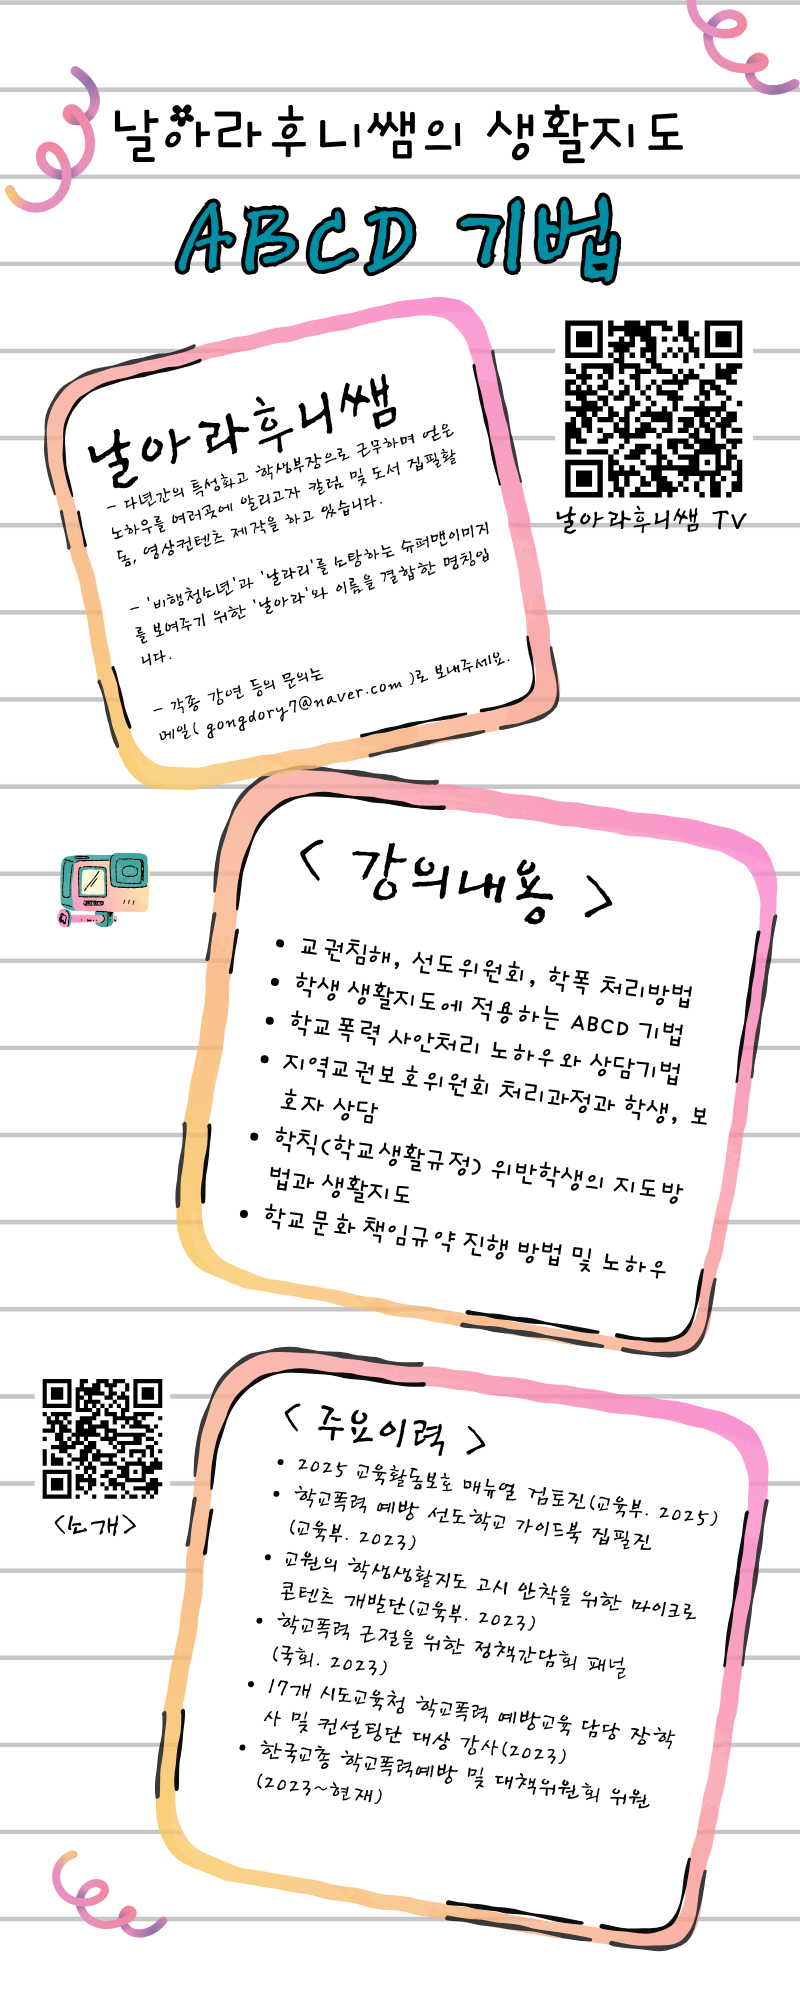 날아라후니쌤의 생활지도
ABCD 기법
날아라후니쌤
- 다년간의 특성화고 학생부장으로 근무하며 얻은
노하우를 여러곳에 알리고자 칼럼 및 도서 집필활
동, 영상컨텐츠 제작을 하고 있습니다.
- '비행청소년'과 '날라리'를 소탕하는 슈퍼맨이미지
를 보여주기 위한 '날아라'와 이름을 결합한 명칭입
니다.
- 각종 강연 등의 문의는
메일( gongdory7@naver.com )로 보내주세요.
날아라후니쌤 TV
< 강의내용 >
• 교권침해, 선도위원회, 학폭 처리방법
• 학생 생활지도에 적용하는 ABCD 기법
• 학교폭력 사안처리 노하우와 상담기법
• 지역교권보호위원회 처리과정과 학생, 보
호자 상담
• 학칙(학교생활규정) 위반학생의 지도방
법과 생활지도
• 학교문화 책임규약 진행 방법 및 노하우
<소개>
< 주요이력 >
• 2025 교육활동보호 매뉴얼 검토진(교육부. 2025)
• 학교폭력 예방 선도학교 가이드북 집필진
(교육부. 2023)
• 교원의 학생생활지도 고시 안착을 위한 마이크로
콘텐츠 개발단(교육부. 2023)
• 학교폭력 근절을 위한 정책간담회 패널
(국회. 2023)
• 17개 시도교육청 학교폭력 예방교육 담당 장학
사 및 컨설팅단 대상 강사(2023)
• 한국교총 학교폭력예방 및 대책위원회 위원
(2023~현재)